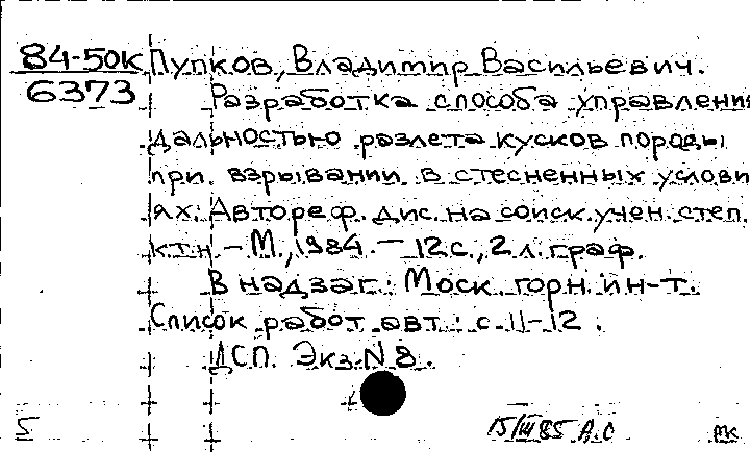 84-50к Пупков, Владимир Васильевич.
6373 Разработка способа управлени
дальностью разлета кусков породы
при взрывании в стесненных услови
ях: Автореф. дис. на соиск. учен. степ.
ктн - М., 1984. - 12 с., 2 л. граф.
В надзаг.: Моск. горн. ин-т.
Список работ авт.: с. 11-12.
ДСП. Экз. N 8.
5 15/III 85 А.С рк